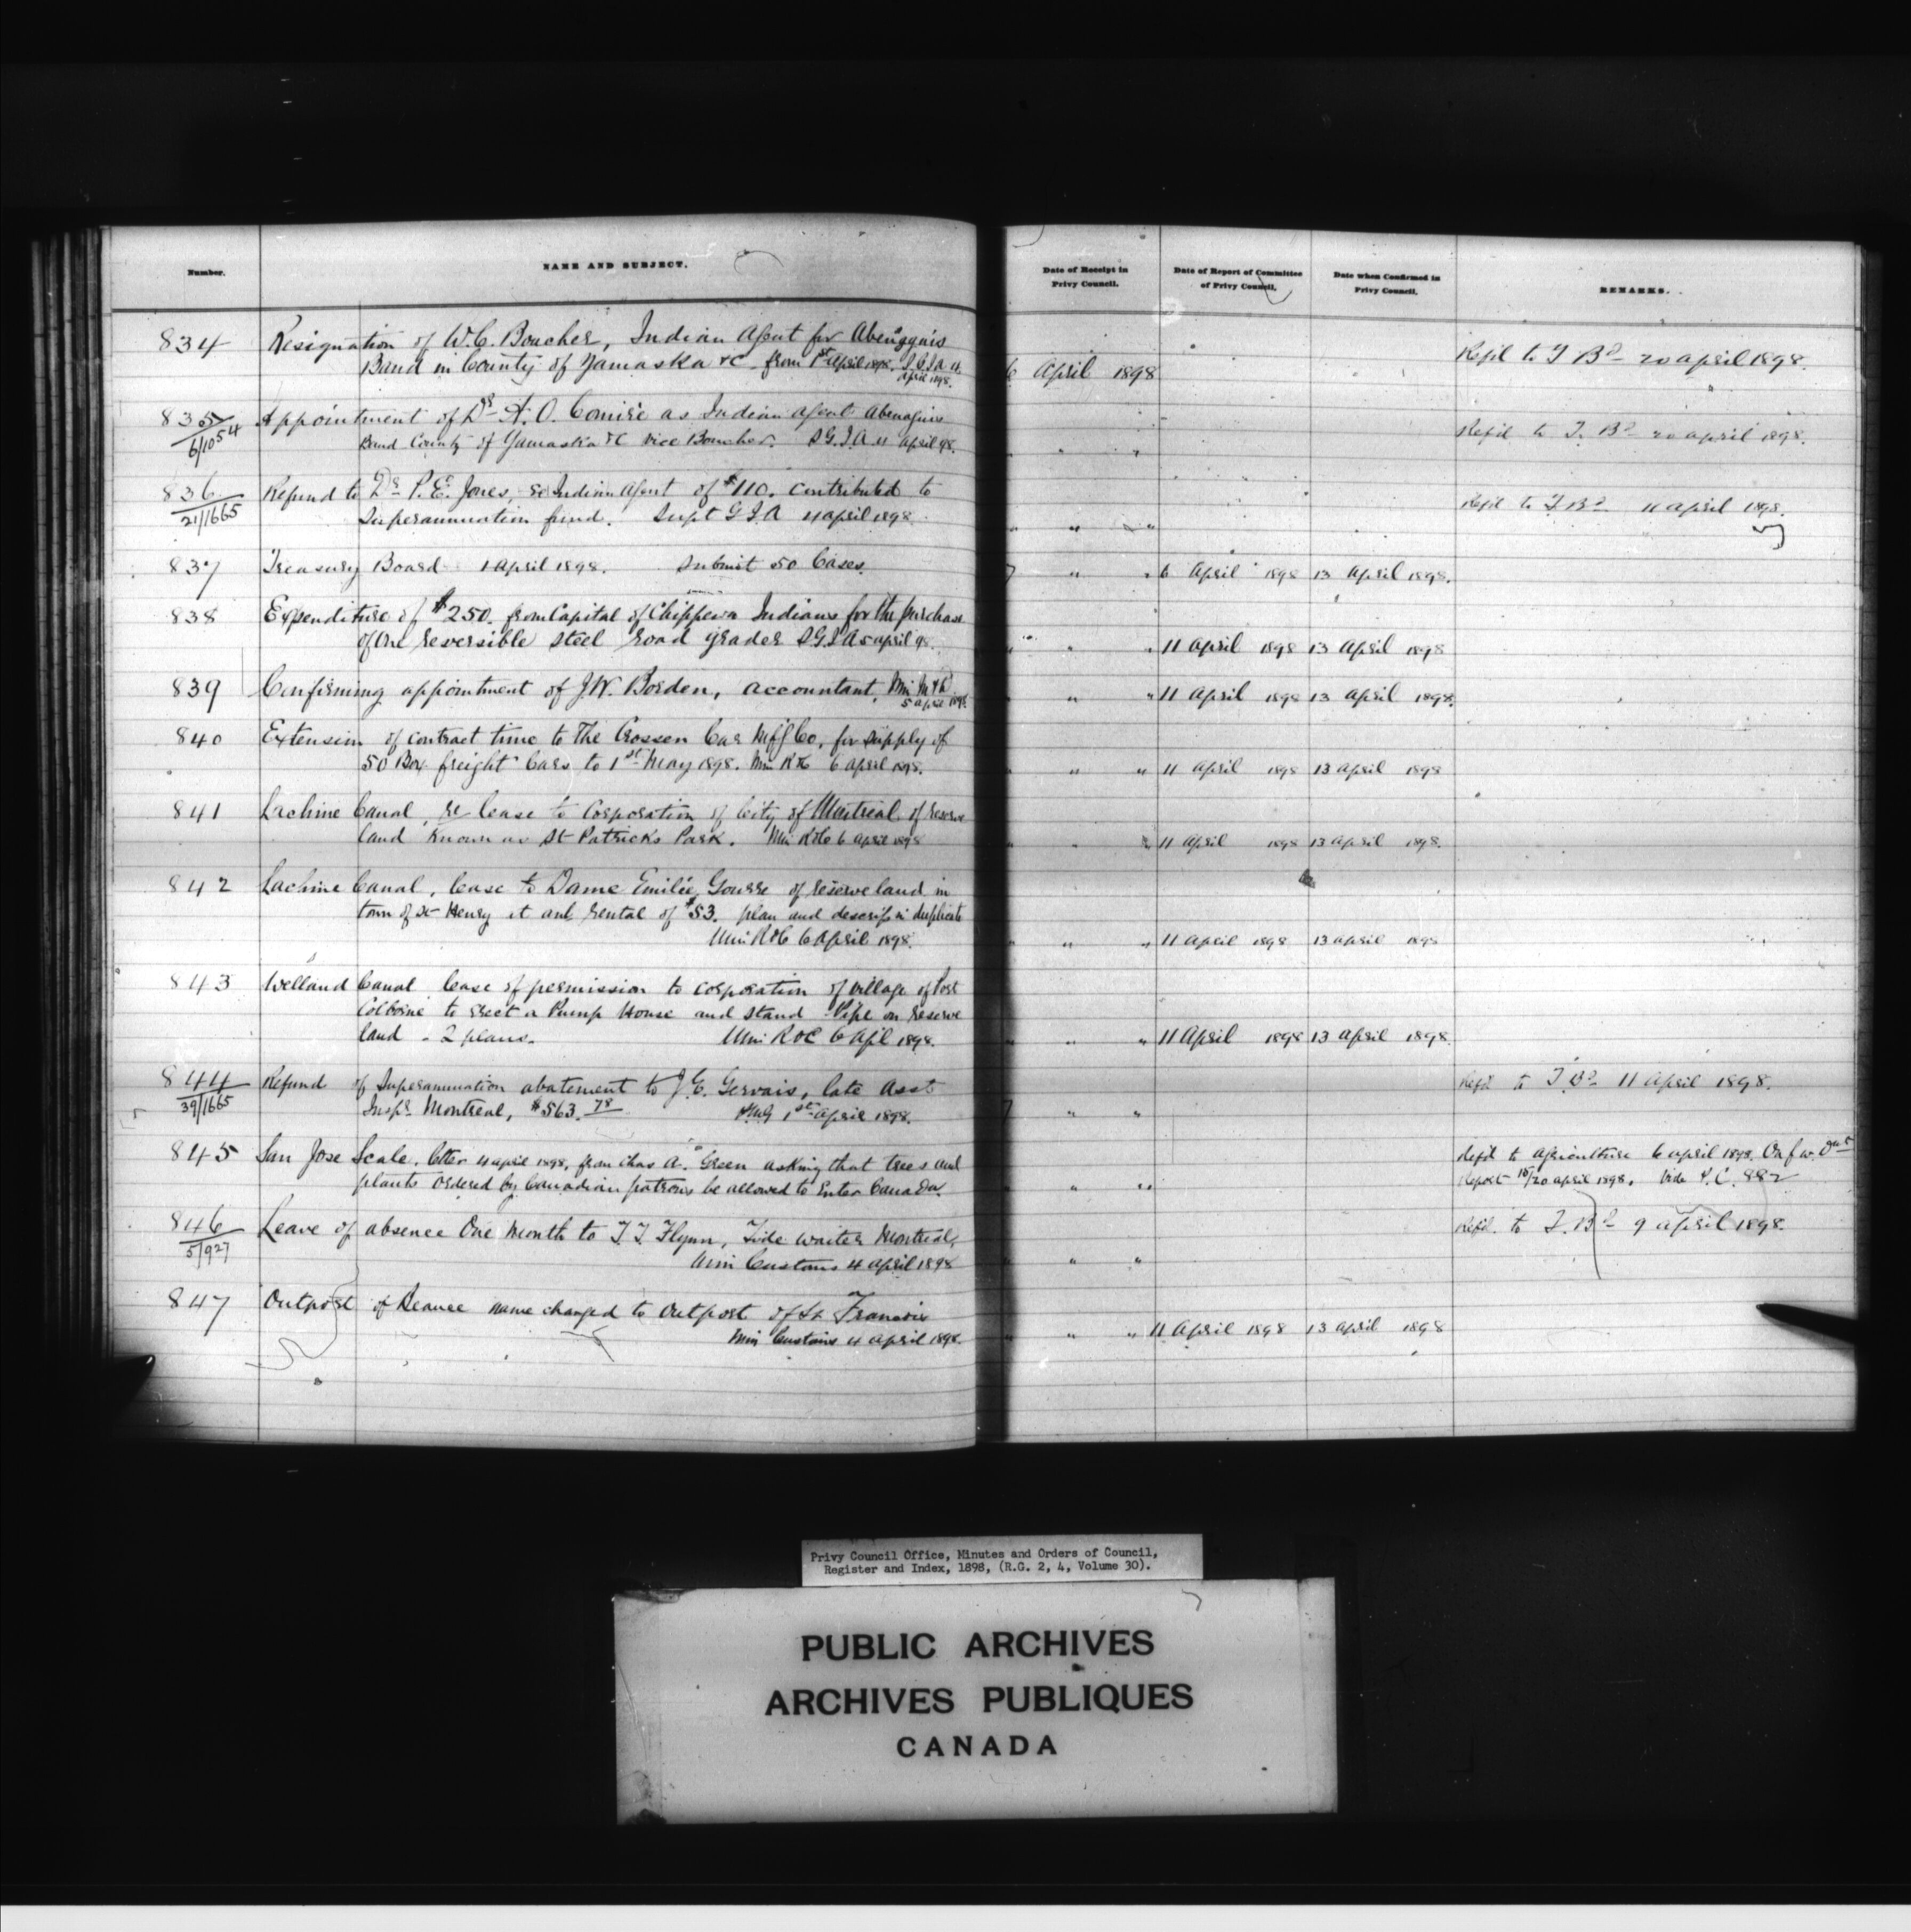 Number.
NAME AND SUBJECT.
Date of Receipt in
Privy Council.
Date of Report of Committee
of Privy Council.
Date when Confirmed in
Privy Council.
REMARKS.
834 Resignation of W.C. Boucher, Indian Agent for Abenaquis
Band in County of Yamaska &c from 1st April 1898. April 1898.
6 April 1898
Refd to T Bd 20 april 1898.
835 Appointment of Dr A.O. Comiré as Indian agent Abenaquis
6/1054 Band County of Yamaska &c vice Boucher. S.G.I.A. 4 april 98.
" "
Refd to T. Bd 20 april 1898.
836 Refund to Dr P.E. Jones, Indian Agent of $110. contributed to
21/1665 Superannuation fund. Supt G I A 4 april 1898.
" "
Refd to T Bd 11 april 1898.
837 Treasury Board 1 April 1898. Submit 50 Cases.
" " 6 April 1898 13 April 1898.
838 Expenditure of $250. from Capital of Chippewa Indians for the purchase
of one reversible steel road grader S.G.I.A 5 april 98.
" " " 11 April 1898 13 April 1898
839 Confirming appointment of J.W. Borden, accountant, Min M & D
5 april 1898.
" " " 11 April 1898 13 april 1898.
840 Extension of contract time to The Crossen Car Mfg Co, for supply of
50 Box freight Cars to 1st May 1898. Min R & C 6 April 1898.
" " " 11 April 1898 13 april 1898
841 Lachine Canal, re lease to Corporation of City of Montreal of reserve
land known as St Patricks Park. Min R & C 6 april 1898
" " 11 april 1898 13 april 1898.
842 Lachine Canal, lease to Dame Emilie Gourre of reserve land in
town of St Henry at anl rental of $53. plan and descrip in duplicate
Min R & C 6 April 1898.
" " " 11 april 1898 13 april 1898
843 Welland Canal lease of permission to corporation of village of Port
Colborne to erect a Pump House and Stand Pipe on reserve
land - 2 plans. Min R & C 6 Apl 1898.
" " " 11 April 1898 13 april 1898.
844 Refund of Superannuation abatement to J.E. Gervais, late Asst
39/1665 Inspr Montreal, $563.78 PMG 1st April 1898.
" "
Refd to T. Bd 11 April 1898.
845 San Jose Scale, letter 4 april 1898, from Chas A. Green asking that trees and
plants ordered by Canadian patrons be allowed to enter Canada.
" "
Refd to Agriculture 6 april 1898.
Report 18/20 april 1898. Vide P.C. 882
846 Leave of absence One Month to T.J. Flynn, Tide waiter Montreal,
5/927 Min Customs 4 april 1898
" "
Refd. to T. Bd 9 april 1898.
847 Outpost of Beauce name changed to Outpost of St Francois
Min Customs 4 april 1898.
" " " 11 April 1898 13 april 1898
Privy Council Office, Minutes and Orders of Council,
Register and Index, 1898, (R.G. 2, 4, Volume 30).
PUBLIC ARCHIVES
ARCHIVES PUBLIQUES
CANADA